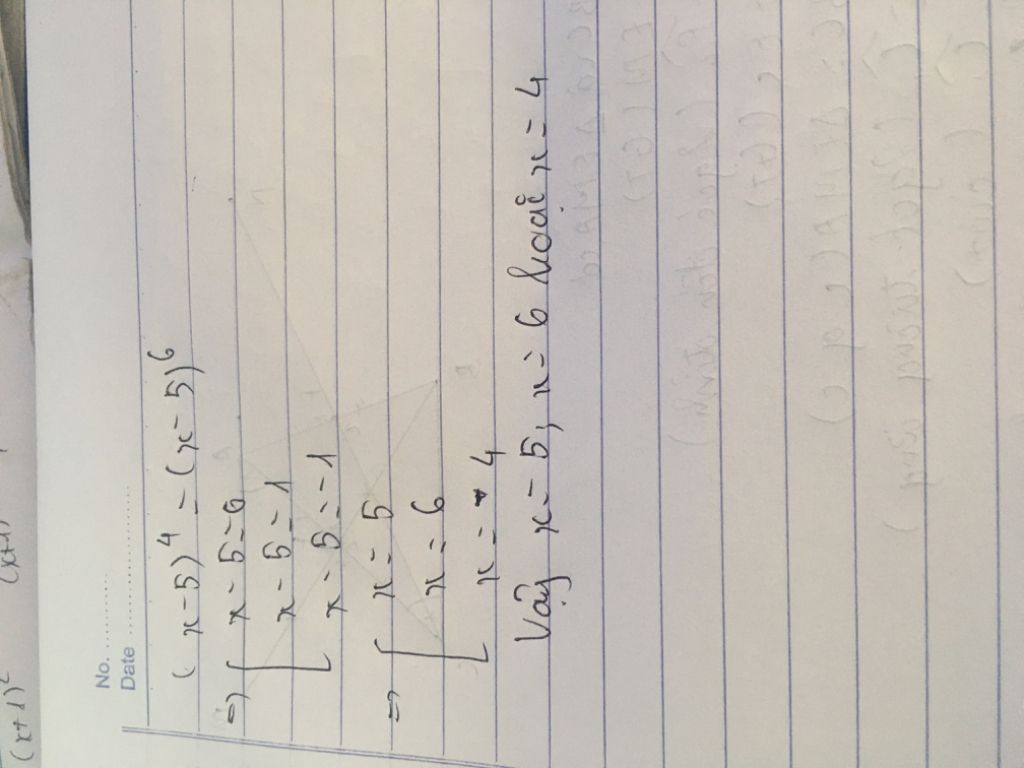 No. ............
Date ....................
(x-5)⁴ = (x-5)⁶
=> [ x-5=0
x-5=1
x-5=-1
=> [ x=5
x=6
x=4
Vậy x=5, x=6 hoặc x=4
(x+1)²